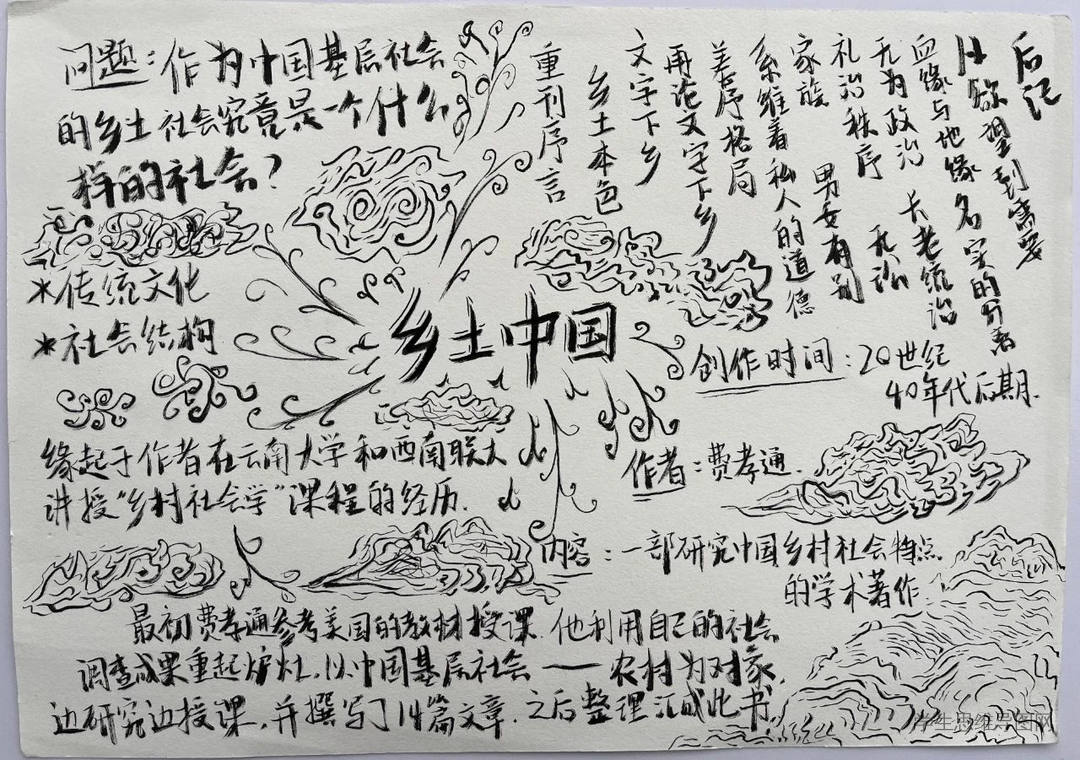 问题:作为中国基层社会
的乡土社会究竟是一个什么
样的社会?
*传统文化
*社会结构
乡土中国
重刊序言
乡土本色
文字下乡
再论文字下乡
差序格局
系维着私人的道德
家族
男女有别
礼治秩序
无讼
无为政治
长老统治
血缘与地缘
名字的分离
从欲望到需要
后记
创作时间:20世纪
40年代后期.
作者:费孝通.
缘起于作者在云南大学和西南联大
讲授“乡村社会学”课程的经历.
内容:一部研究中国乡村社会特点
的学术著作
最初费孝通参考美国的教材授课.他利用自己的社会
调查成果重起炉灶,以中国基层社会——农村为对象,
边研究边授课,并撰写了14篇文章.之后整理汇成此书.
学生思维导图网